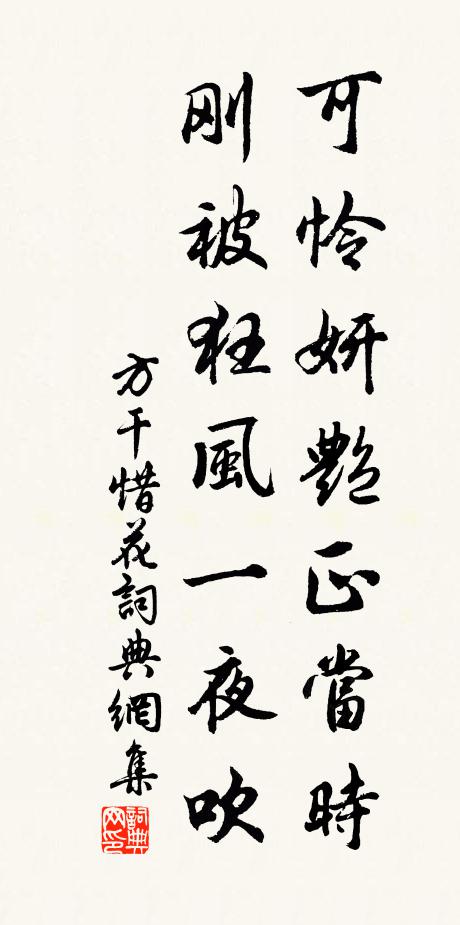 可怜妍艷正當時
刚被狂風一夜吹
方干惜花詞典網集
詞典网印